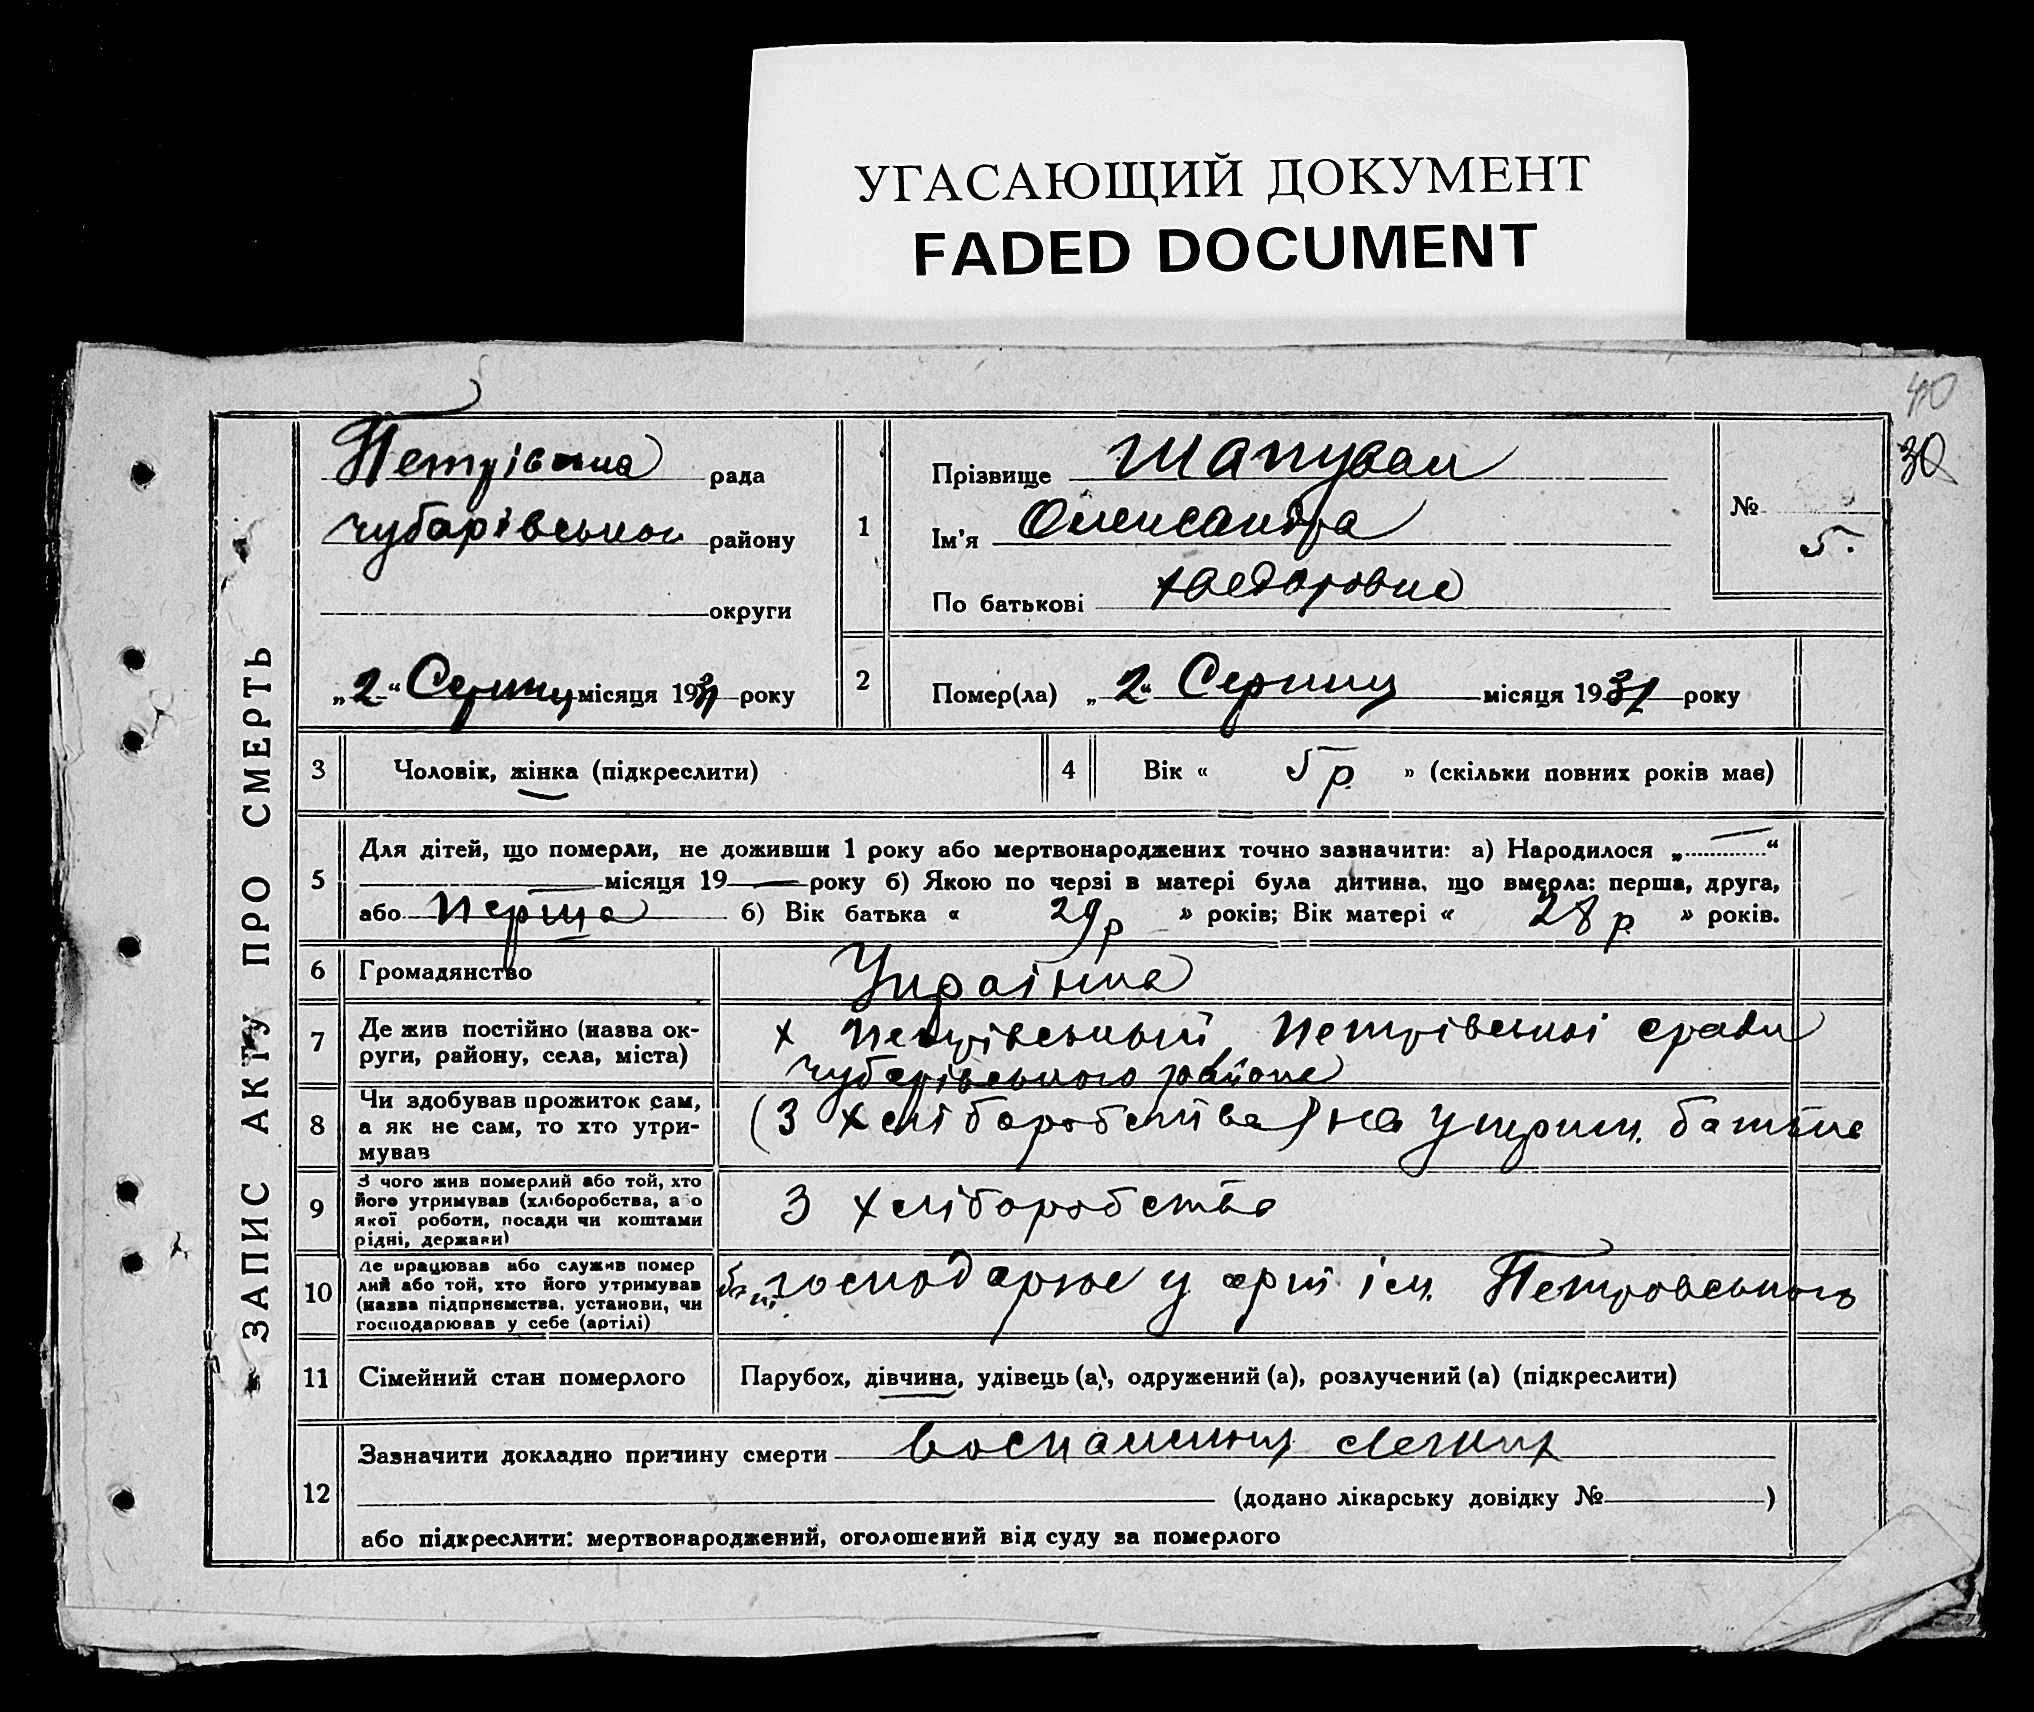 УГАСАЮЩИЙ ДОКУМЕНТ
FADED DOCUMENT
40
30
ЗАПИС АКТУ ПРО СМЕРТЬ
Петрівська рада
Чубарівської району
округи
„2“ Серпня місяця 1931 року
1
Прізвище Шаповал
Ім'я Олександра
По батькові Хведоровна
№ 5.
2
Помер(ла) „2“ Серпня місяця 1931 року
3 Чоловік, жінка (підкреслити)
4 Вік « 5 р. » (скільки повних років має)
5 Для дітей, що померли, не доживши 1 року або мертвонароджених точно зазначити: а) Народилося „ — “
— місяця 19 — року б) Якою по черзі в матері була дитина, що вмерла: перша, друга,
або перша б) Вік батька « 29 р » років; Вік матері « 28 р. » років.
6 Громадянство Українка
7 Де жив постійно (назва ок-
руги, району, села, міста)
х Петрівський Петрівської сради
Чубарівського района
8 Чи здобував прожиток сам,
а як не сам, то хто утри-
мував
(З хліборобства) на утрим. батька
9 З чого жив померлий або той, хто
його утримував (хліборобства, або
якої роботи, посади чи коштами
рідні, держави)
З хліборобства
10 Де працював або служив помер
лий або той, хто його утримував
(назва підприємства, установи, чи
господарював у себе (артілі)
господарює у арт ім. Петровського
11 Сімейний стан померлого Парубок, дівчина, удівець (а), одружений (а), розлучений (а) (підкреслити)
12 Зазначити докладно причину смерти воспаления легких
(додано лікарську довідку № )
або підкреслити: мертвонароджений, оголошений від суду за померлого